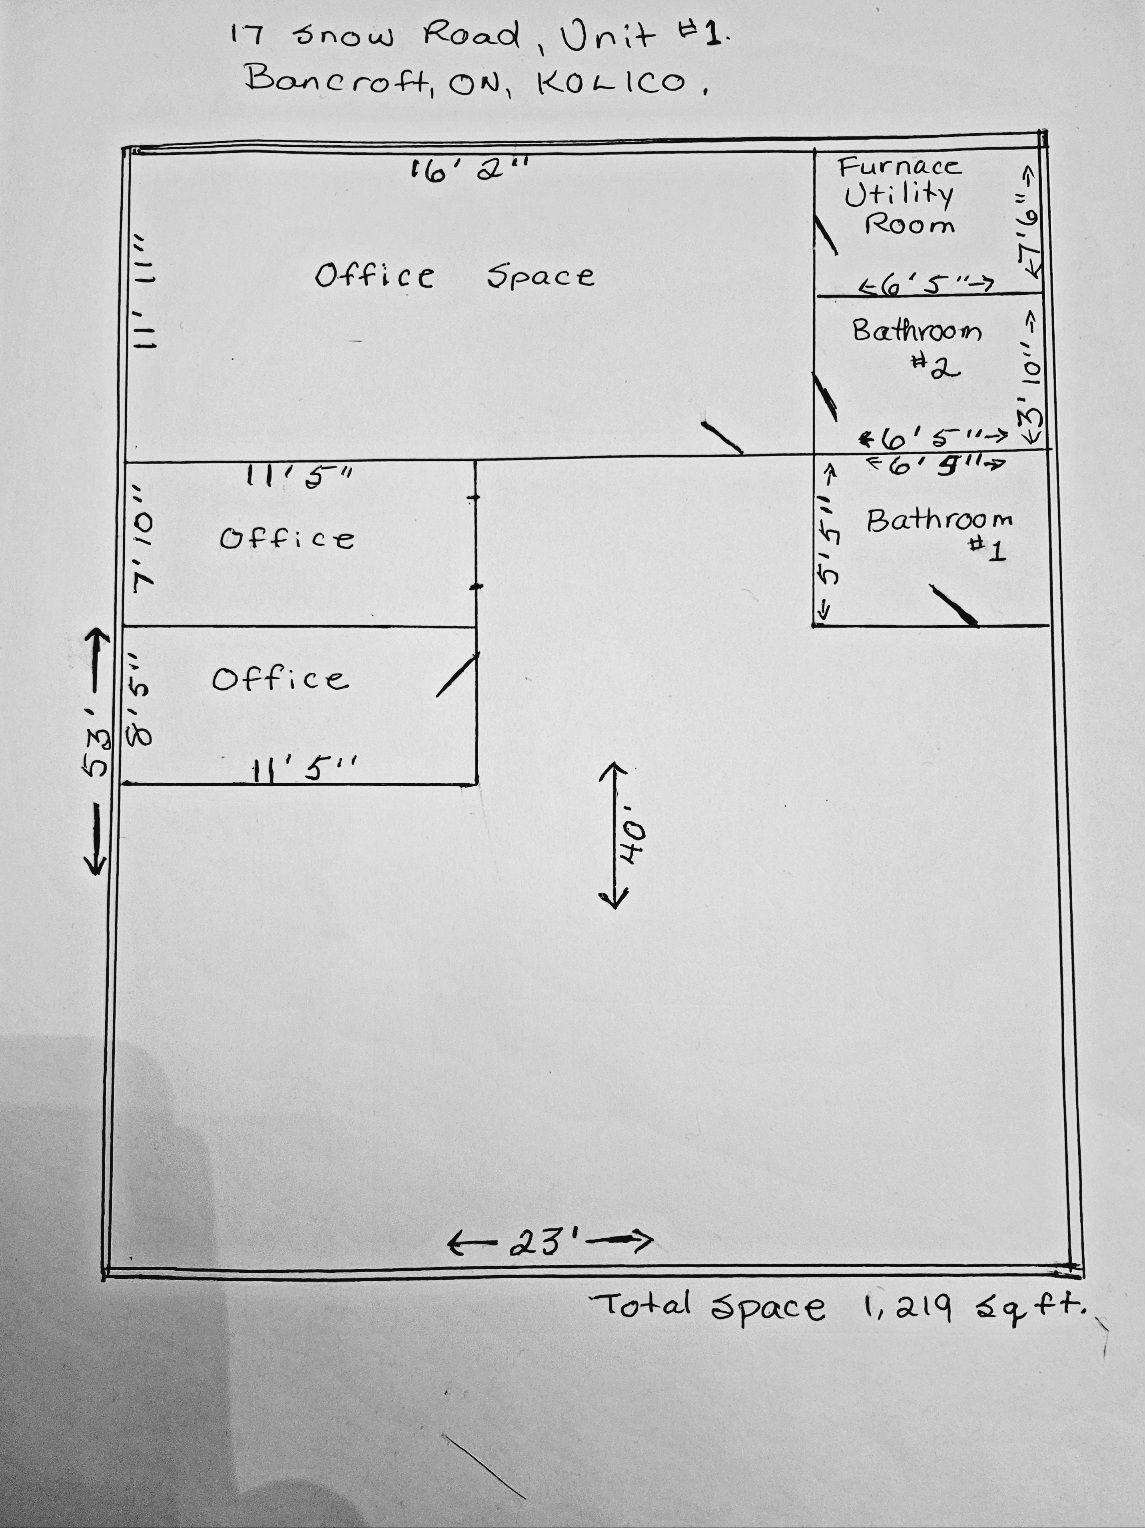 17 Snow Road, Unit #1.
Bancroft, ON, K0L1C0.
16' 2"
Furnace
Utility
Room
7'6"
11' 11"
Office Space
6' 5"
Bathroom
#2
3' 10"
6' 5"
6' 5"
11' 5"
7' 10"
Office
5' 5"
Bathroom
#1
8' 5"
Office
11' 5"
53'
40'
23'
Total Space 1,219 sq ft.